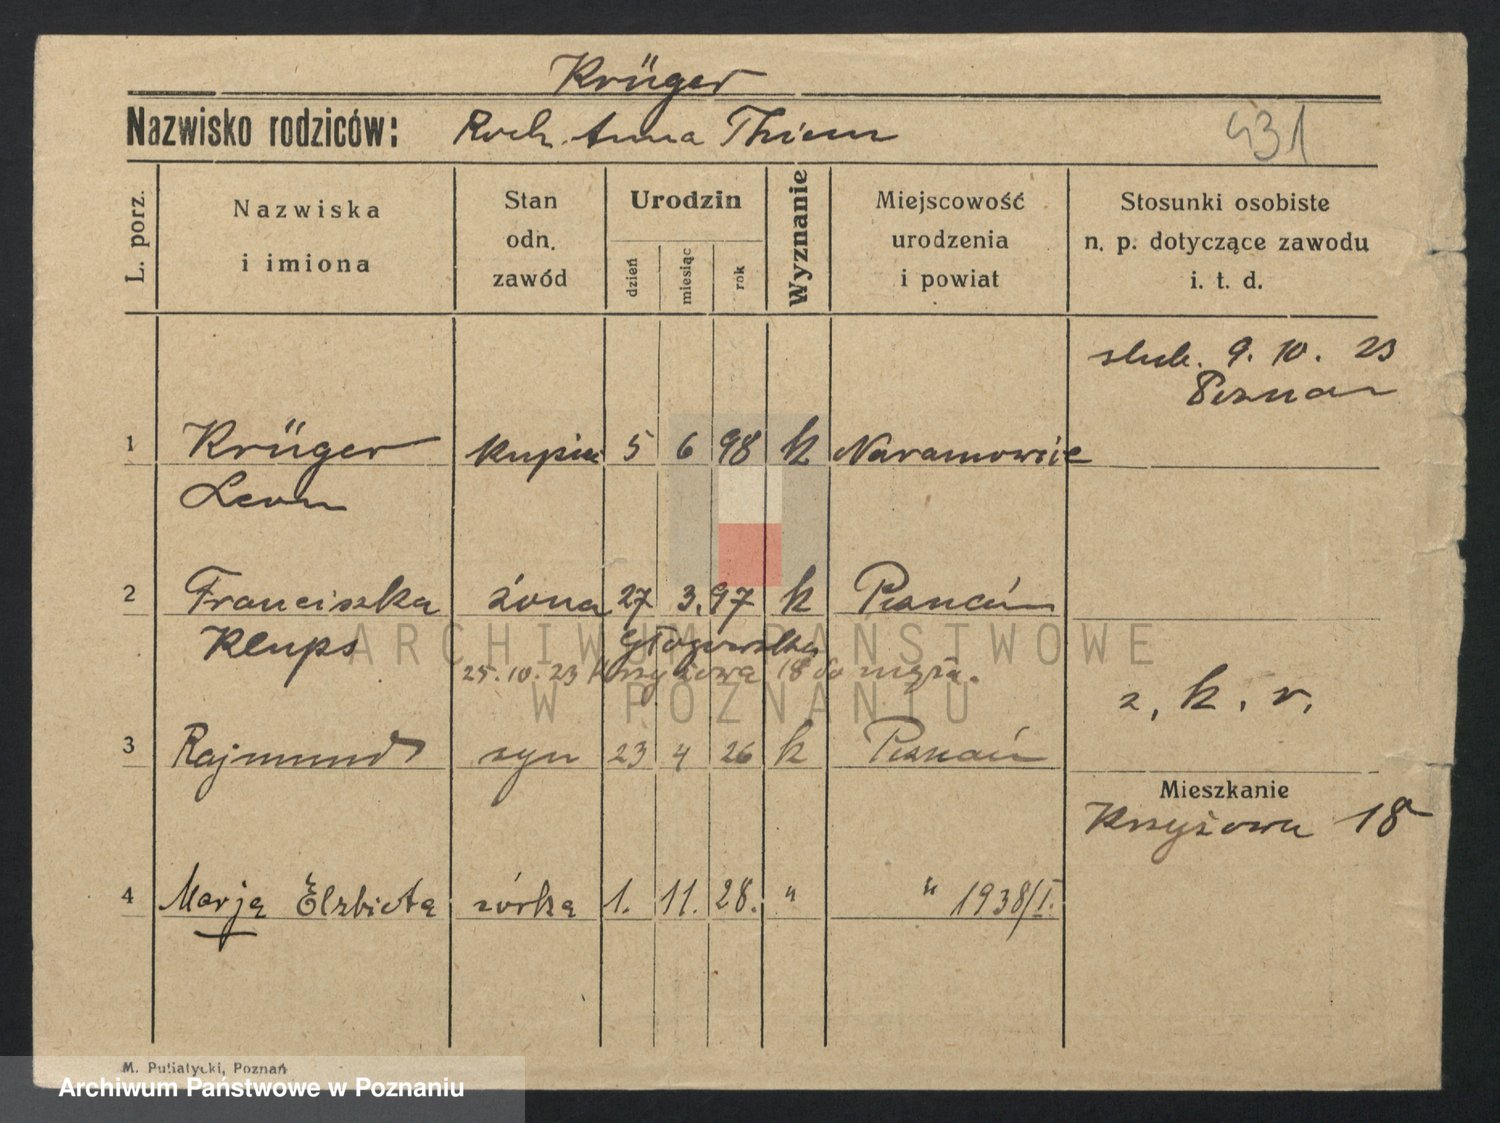 Krüger
Nazwisko rodziców: Roch. Anna Thiem
931
L. porz.
Nazwiska
i imiona
Stan
odn.
zawód
Urodzin
dzień
miesiąc
rok
Wyznanie
Miejscowość
urodzenia
i powiat
Stosunki osobiste
n. p. dotyczące zawodu
i. t. d.
slub. 9. 10. 23
Poznań
1 Krüger kupiec 5 6 98 k Naramowice
Leon
2 Franciszka żona 27 3. 97 k Poznań
Klups Głogowska
25.10.23 Krzyżowa 18 do męża.
z. k. r.
3 Rajmund syn 23 4 26 k Poznań
Mieszkanie
Krzyżowa 18
4 Marja Elżbieta córka 1. 11. 28. " " 1938/I.
ARCHIWUM PAŃSTWOWE
W POZNANIU
M. Putiatycki, Poznań
Archiwum Państwowe w Poznaniu